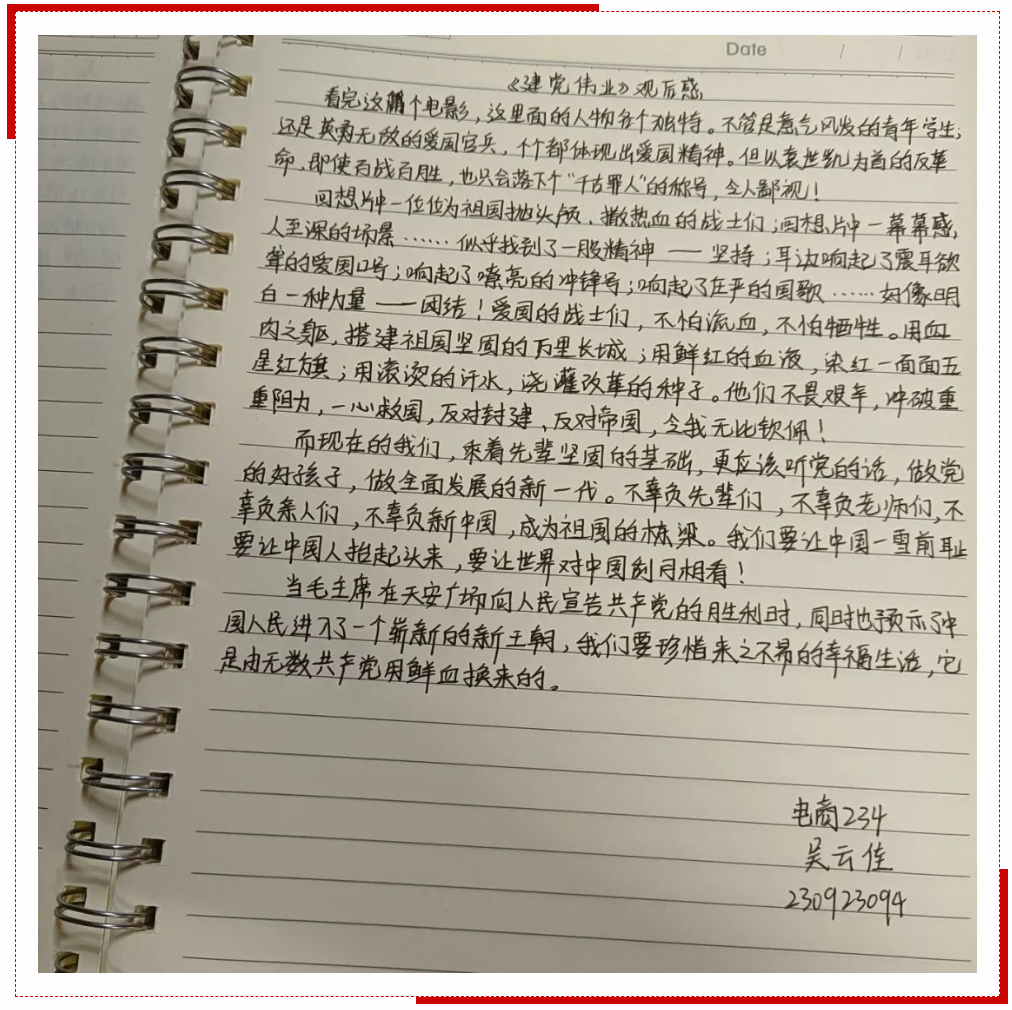 Date / /
《建党伟业》观后感
看完这个电影，这里面的人物各个独特。不管是意气风发的青年学生；
还是英勇无敌的爱国官兵，个个都体现出爱国精神。但以袁世凯为首的反革
命，即使百战百胜，也只会落下个“千古罪人”的称号，令人鄙视！
回想片中一位位为祖国抛头颅、撒热血的战士们；回想片中一幕幕感
人至深的场景……似乎找到了一股精神——坚持；耳边响起了震耳欲
聋的爱国口号；响起了嘹亮的冲锋号；响起了庄严的国歌……好像明
白一种力量——团结！爱国的战士们，不怕流血，不怕牺牲。用血
肉之躯，搭建祖国坚固的万里长城；用鲜红的血液，染红一面面五
星红旗；用滚烫的汗水，浇灌改革的种子。他们不畏艰辛，冲破重
重阻力，一心救国，反对封建、反对帝国，令我无比钦佩！
而现在的我们，乘着先辈坚固的基础，更应该听党的话，做党
的好孩子，做全面发展的新一代。不辜负先辈们，不辜负老师们，不
辜负亲人们，不辜负新中国，成为祖国的栋梁。我们要让中国一雪前耻
要让中国人抬起头来，要让世界对中国刮目相看！
当毛主席在天安广场向人民宣告共产党的胜利时，同时也预示了中
国人民进入了一个崭新的新王朝，我们要珍惜来之不易的幸福生活，它
是由无数共产党用鲜血换来的。
电商234
吴云佳
230923094